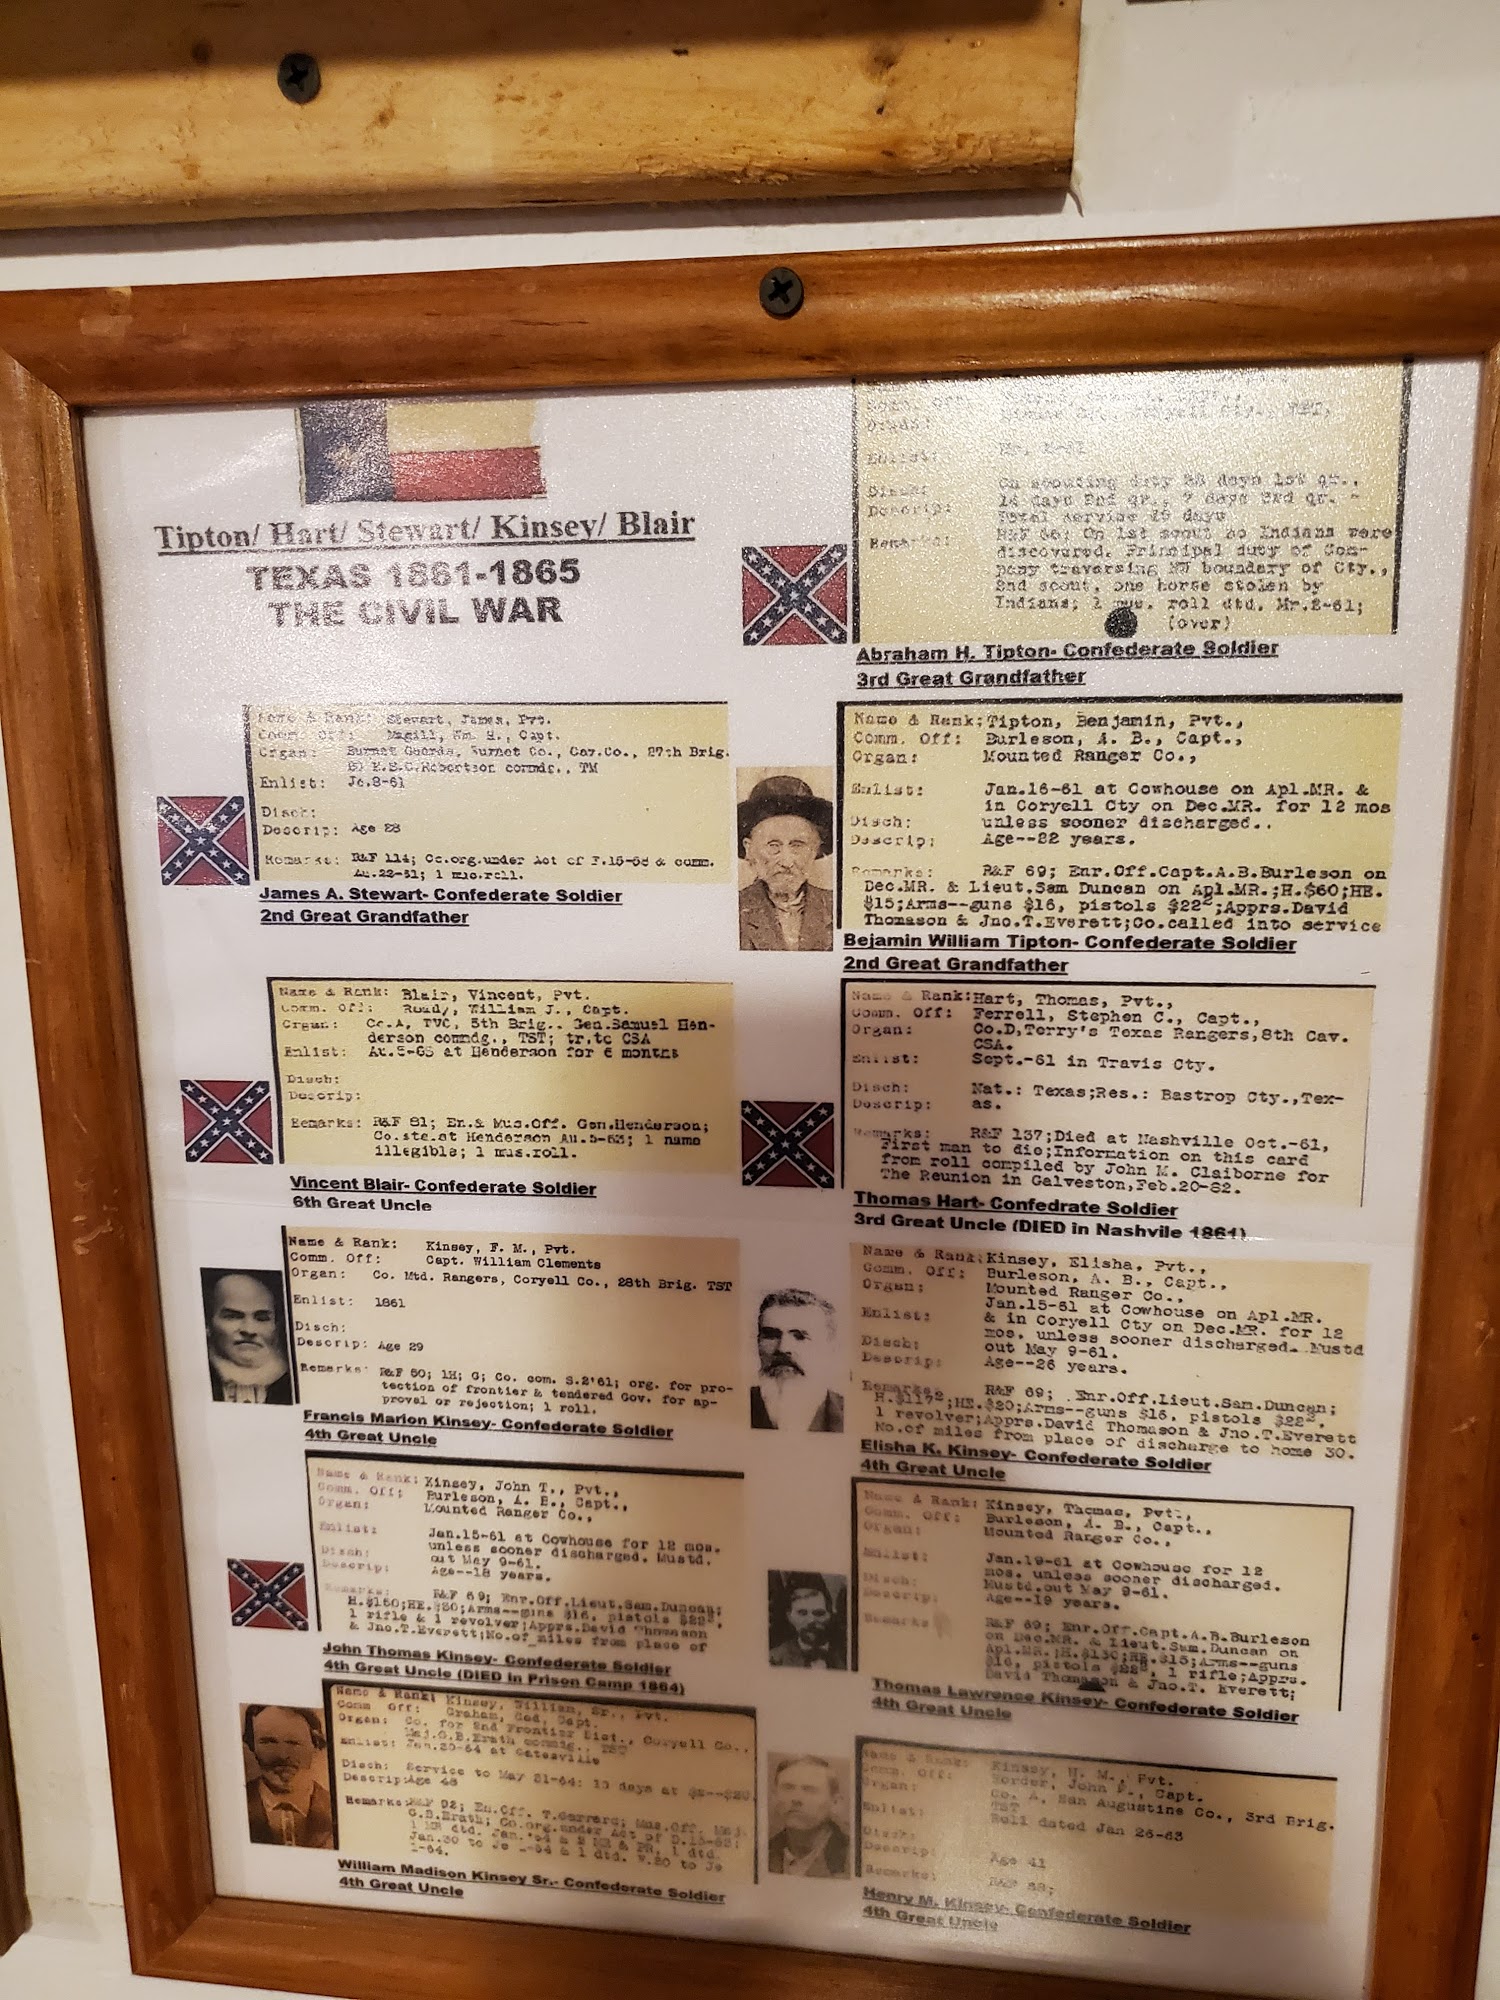 Tipton/ Hart/ Stewart/ Kinsey/ Blair
TEXAS 1861-1865
THE CIVIL WAR
Enlist:
Disch:
Descrip:
Remarks:
On scouting duty days 1st qr.,
14 days 2nd qr., 7 days 3rd qr. -
Total service days
R&F 66; On 1st scout no Indians were
discovered. Principal duty of Com-
pany traversing NW boundary of Cty.,
2nd scout, one horse stolen by
Indians; 1 mus. roll dtd. Mr.2-61;
(over)
Abraham H. Tipton- Confederate Soldier
3rd Great Grandfather
Name & Rank: Stewart, James, Pvt.
Comm. Off: Magill, Wm. H., Capt.
Organ: Burnet Guards, Burnet Co., Cav.Co., 27th Brig.
E.S.C.Robertson commdg., TM
Enlist: Je.8-61
Disch:
Descrip: Age 28
Remarks: R&F 114; Co.org.under Act of F.15-58 & comm.
1 mus.roll.
James A. Stewart- Confederate Soldier
2nd Great Grandfather
Name & Rank: Tipton, Benjamin, Pvt.,
Comm. Off: Burleson, A. B., Capt.,
Organ: Mounted Ranger Co.,
Enlist: Jan.16-61 at Cowhouse on Apl.MR. &
in Coryell Cty on Dec.MR. for 12 mos
Disch: unless sooner discharged..
Descrip: Age--22 years.
Remarks: R&F 69; Enr.Off.Capt.A.B.Burleson on
Dec.MR. & Lieut.Sam Duncan on Apl.MR.;H.$60;HE.
$15;Arms--guns $16, pistols $22²;Apprs.David
Thomason & Jno.T.Everett;Co.called into service
Bejamin William Tipton- Confederate Soldier
2nd Great Grandfather
Name & Rank: Blair, Vincent, Pvt.
Comm. Off: Roudy, William J., Capt.
Organ: Co.A, TVC, 5th Brig., Gen.Samuel Hen-
derson commdg., TST; tr.to CSA
Enlist: Au.5-63 at Henderson for 6 months
Disch:
Descrip:
Remarks: R&F 81; En.& Mus.Off. Gen.Henderson;
Co.sta.at Henderson Au.5-63; 1 name
illegible; 1 mus.roll.
Vincent Blair- Confederate Soldier
6th Great Uncle
Name & Rank: Hart, Thomas, Pvt.,
Comm. Off: Ferrell, Stephen C., Capt.,
Organ: Co.D,Terry's Texas Rangers,8th Cav.
CSA.
Enlist: Sept.-61 in Travis Cty.
Disch: Nat.: Texas;Res.: Bastrop Cty.,Tex-
Descrip: as.
Remarks: R&F 137;Died at Nashville Oct.-61,
First man to die;Information on this card
from roll compiled by John M. Claiborne for
The Reunion in Galveston,Feb.20-82.
Thomas Hart- Confedrate Soldier
3rd Great Uncle (DIED in Nashvile 1861)
Name & Rank: Kinsey, F. M., Pvt.
Comm. Off: Capt. William Clements
Organ: Co. Mtd. Rangers, Coryell Co., 28th Brig. TST
Enlist: 1861
Disch:
Descrip: Age 29
Remarks: R&F 50; 1H; G; Co. com. S.2'61; org. for pro-
tection of frontier & tendered Gov. for ap-
proval or rejection; 1 roll.
Francis Marion Kinsey- Confederate Soldier
4th Great Uncle
Name & Rank: Kinsey, Elisha, Pvt.,
Comm. Off: Burleson, A. B., Capt.,
Organ: Mounted Ranger Co.,
Enlist: Jan.15-61 at Cowhouse on Apl.MR.
& in Coryell Cty on Dec.MR. for 12
Disch: mos. unless sooner discharged. Mustd
out May 9-61.
Descrip: Age--26 years.
Remarks: R&F 69; Enr.Off.Lieut.Sam.Duncan;
H.$117²;HE.$20;Arms--guns $16, pistols $22²,
1 revolver;Apprs.David Thomason & Jno.T.Everett
No.of miles from place of discharge to home 30.
Elisha K. Kinsey- Confederate Soldier
4th Great Uncle
Name & Rank: Kinsey, John T., Pvt.,
Comm. Off: Burleson, A. B., Capt.,
Organ: Mounted Ranger Co.,
Enlist: Jan.15-61 at Cowhouse for 12 mos.
Disch: unless sooner discharged. Mustd.
out May 9-61.
Descrip: Age--18 years.
Remarks: R&F 69; Enr.Off.Lieut.Sam.Duncan;
H.$150;HE.$30;Arms--guns $16, pistols $22²,
1 rifle & 1 revolver;Apprs.David Thomason
& Jno.T.Everett;No.of miles from place of
John Thomas Kinsey- Confederate Soldier
4th Great Uncle (DIED in Prison Camp 1864)
Name & Rank: Kinsey, Thomas, Pvt.,
Comm. Off: Burleson, A. B., Capt.,
Organ: Mounted Ranger Co.,
Enlist: Jan.19-61 at Cowhouse for 12
mos. unless sooner discharged.
Disch: Mustd.out May 9-61.
Descrip: Age--19 years.
Remarks R&F 69; Enr.Off.Capt.A.B.Burleson
on Dec.MR. & Lieut.Sam.Duncan on
Apl.MR.;H.$130;HE.$15;Arms--guns
$16, pistols $22², 1 rifle;Apprs.
David Thomason & Jno.T. Everett;
Thomas Lawrence Kinsey- Confederate Soldier
4th Great Uncle
Name & Rank: Kinsey, William, Sr., Pvt.
Comm Off: Graham, Ged, Capt.
Organ: Co. for 2nd Frontier Dist., Coryell Co.,
Maj.G.B.Erath commdg., TST
Enlist: Jan.30-64 at Gatesville
Disch: Service to May 31-64; 10 days at
Descrip: Age 48
Remarks: R&F 92; En.Off. T.Garrard; Mus.Off. Maj.
G.B.Erath; Co.org.under Act of D.15-63;
William Madison Kinsey Sr.- Confederate Soldier
4th Great Uncle
Name & Rank: Kinsey, H. M., Pvt.
Comm. Off: Border, John P., Capt.
Organ: Co. A, San Augustine Co., 3rd Brig.
TST
Enlist: Roll dated Jan 26-63
Disch:
Descrip: Age 41
Remarks: R&F 88;
Henry M. Kinsey- Confederate Soldier
4th Great Uncle